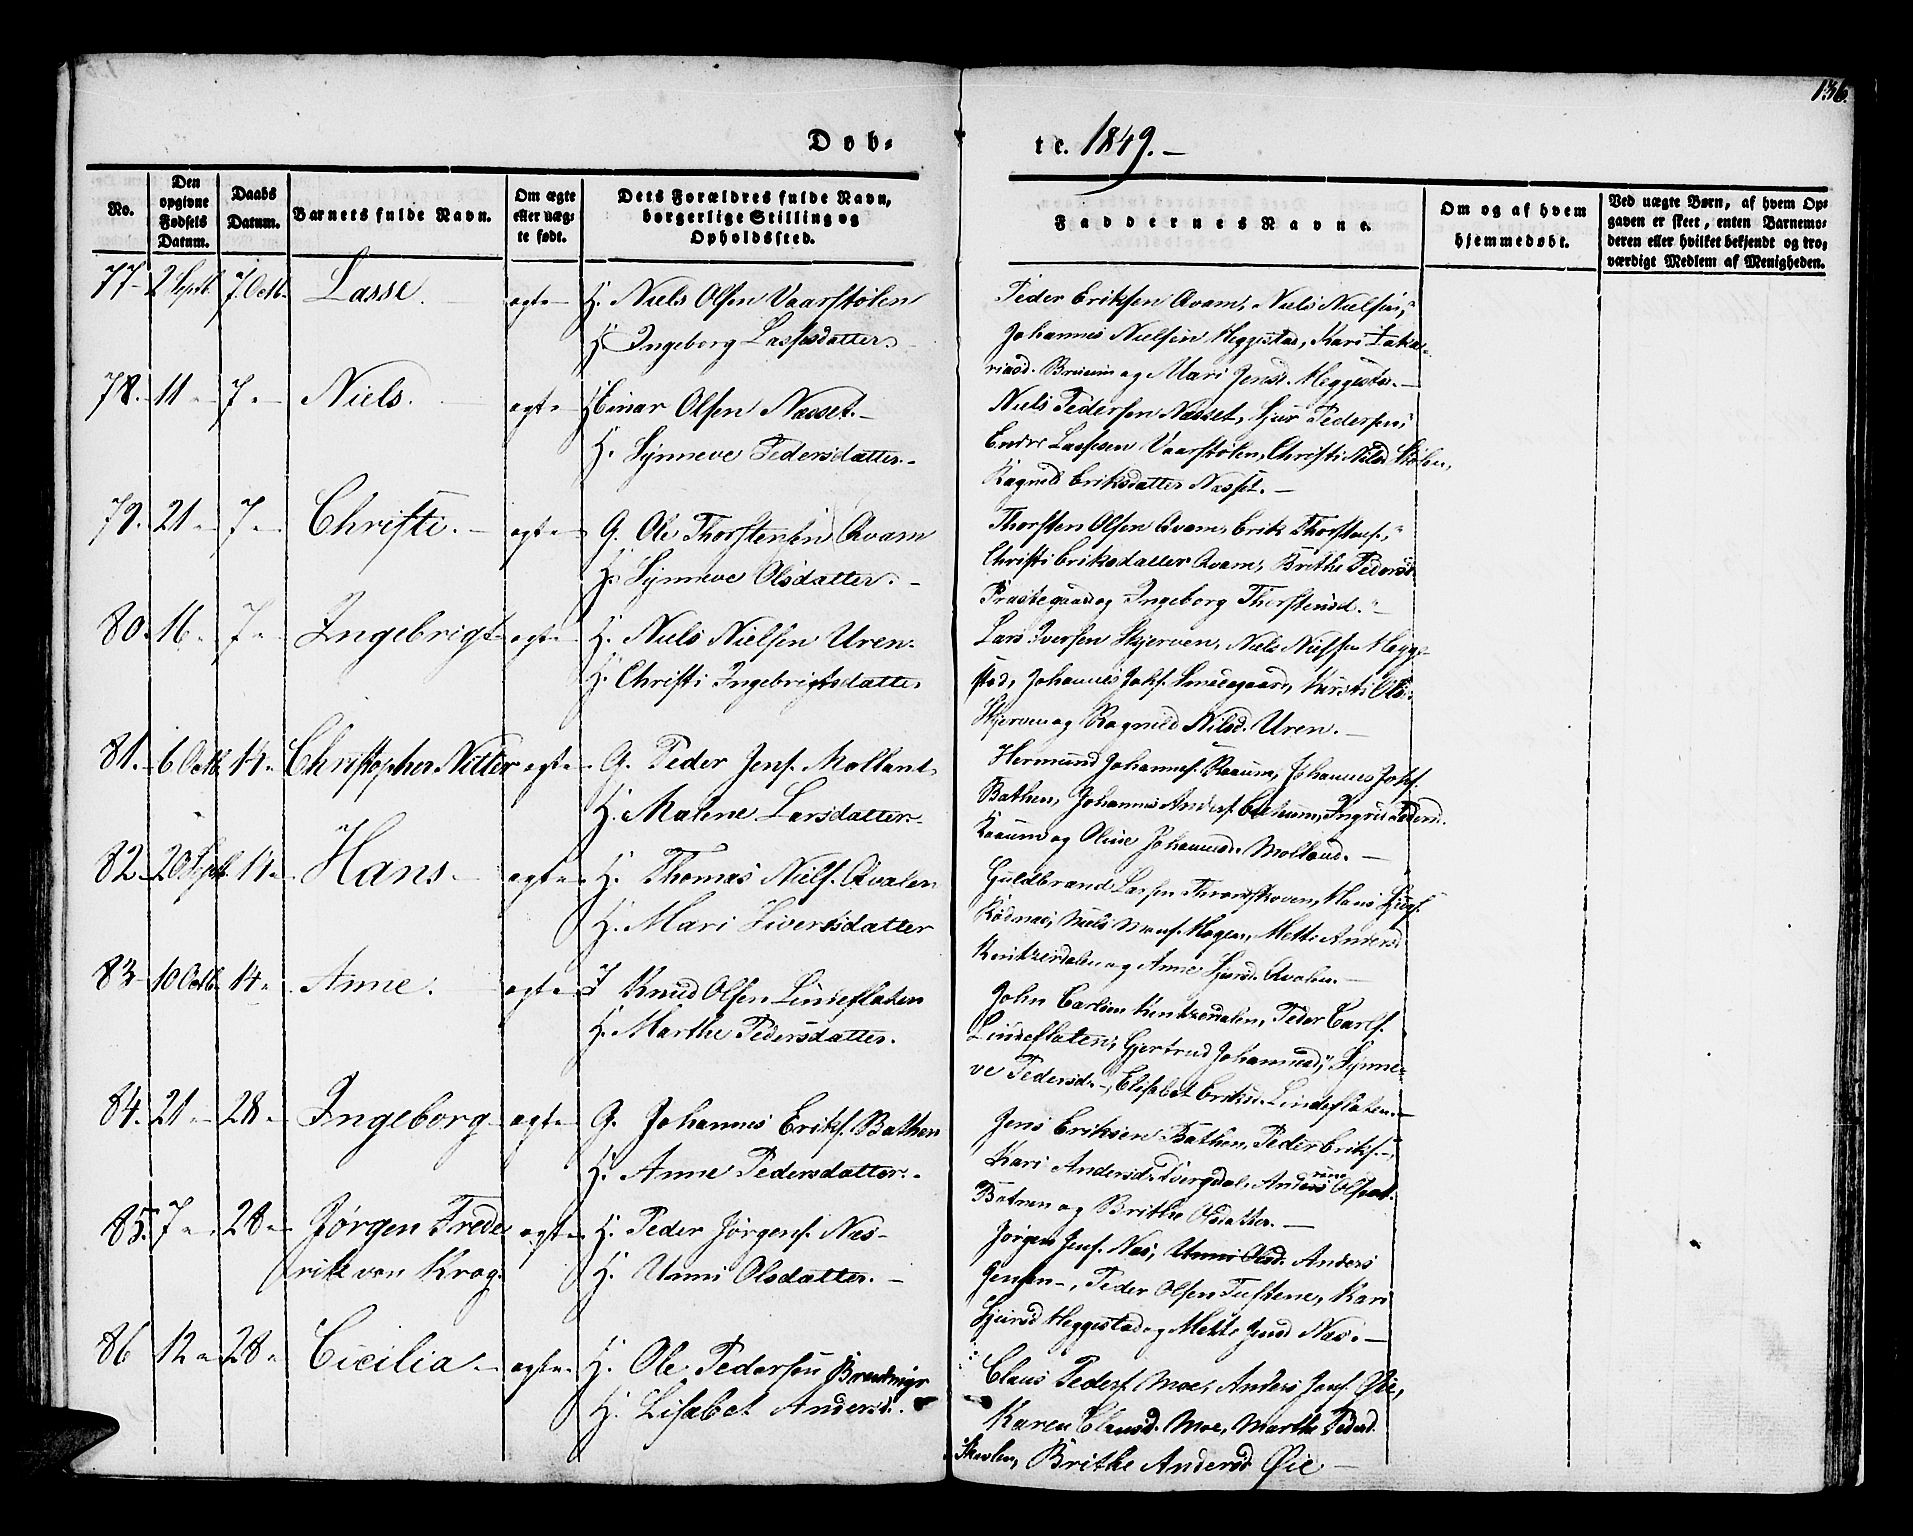 136.
Døb-
te. 1849.-
No.
Den opgivne Fødsels Datum.
Daabs Datum.
Barnets fulde Navn.
Om ægte eller uæg-
te født.
Dets Forældres fulde Navn,
borgerlige Stilling og
Opholdssted.
Faddernes Navne.
Om og af hvem
hjemmedøbt.
Ved uægte Børn, af hvem Op-
gaven er skeet, enten Barnemo-
deren eller hvilket bekjendt og tro-
værdigt Medlem af Menigheden.
77- 2 Septb. 7 Octb. Lasse. ægte H. Niels Olsen Vaarstølen
H. Ingeborg Lassesdatter.
Peder Eriksen Qvam, Niels Nielsen,"
Johannes Nielsen Heggestad, Kari
Bruun og Mari Jensd. Heggestad.-
78. 11 7 Niels. ægte Einar Olsen Næsset.-
H. Synneve Pedersdatter.-
Niels Pedersen Næsset, Sjur Pedersen,"
Endre Lassesen Vaarstølen, Christi Nilsd. Stølen,
Ragnild Eriksdatter Næsset.-
79. 21 7 Christi. ægte G. Ole Thorstensen Qvam
H. Synneve Olsdatter.-
Thorsten Olsen Qvam, Erik Thorstens.,"
Christi Eriksdatter Qvam, Brithe Pedersd.
Præstegaard og Ingeborg Thorstensd."-
80. 16 7 Ingebrigt ægte H. Niels Nielsen Uren.
H. Christi Ingebrigtsdatter
Lars Iversen Skjerven, Niels Nielsen Hegge-
stad, Johannes Johs. Kirsti Ols.
Skjerven og Ragnild Nilsd. Uren.-
81. 6 Octb. 14 Christopher Nitter ægte G. Peder Jens. Molland
H. Malene Larsdatter.
Hermund Johannes. Raaum, Johannes Johs.
Bathen, Johannes Anders. Ingrid Peders.
Raaum og Oline Johannesd. Molland.-
82. 20 Septb. 14 Hans ægte H. Thomas Niels. Qvalen
H. Mari Siversdatter
Guldbrand Larsen Hans Sjurs.
Niels Hagen, Mette Andersd.
Kentzerdalen og Anne Sjursd. Qvalen.-
83 10 Octb. 14 Anne. ægte I Knud Olsen Lindeflaten
H. Marthe Pedersdatter.
John Carlsen Kentzerdalen, Peder Carls.
Lindeflaten, Gjertrud Johannesd.," Synne-
ve Pedersd.-, Elisabet Eriksd. Lindeflaten.-
84. 21 28 Ingeborg ægte G. Johannes Eriks. Bathen
H. Anne Pedersdatter.-
Jens Eriksen Bathen, Peder Eriks.-,
Kari Andersd. Tvergdal, Anders
Bathen og Brithe Olsdatter.-
85. 7 28 Jørgen Frede
rik von Krog. ægte H. Peder Jørgens. Næs-
H. Unni Olsdatter.-
Jørgen Jens. Næs, Unni Olsd. Anders
Jensen-, Peder Olsen Tuftene, Kari
Sjursd. Heggestad og Mette Jensd. Næs.-
86 12 28 Cicilia ægte H. Ole Pedersen Brudmyr
H. Lisabet Andersd.
Claus Peders. Moe, Anders Jens. Øie,
Karen Clausd. Moe, Marthe Pedersd.
Brithe Andersd. Øie-